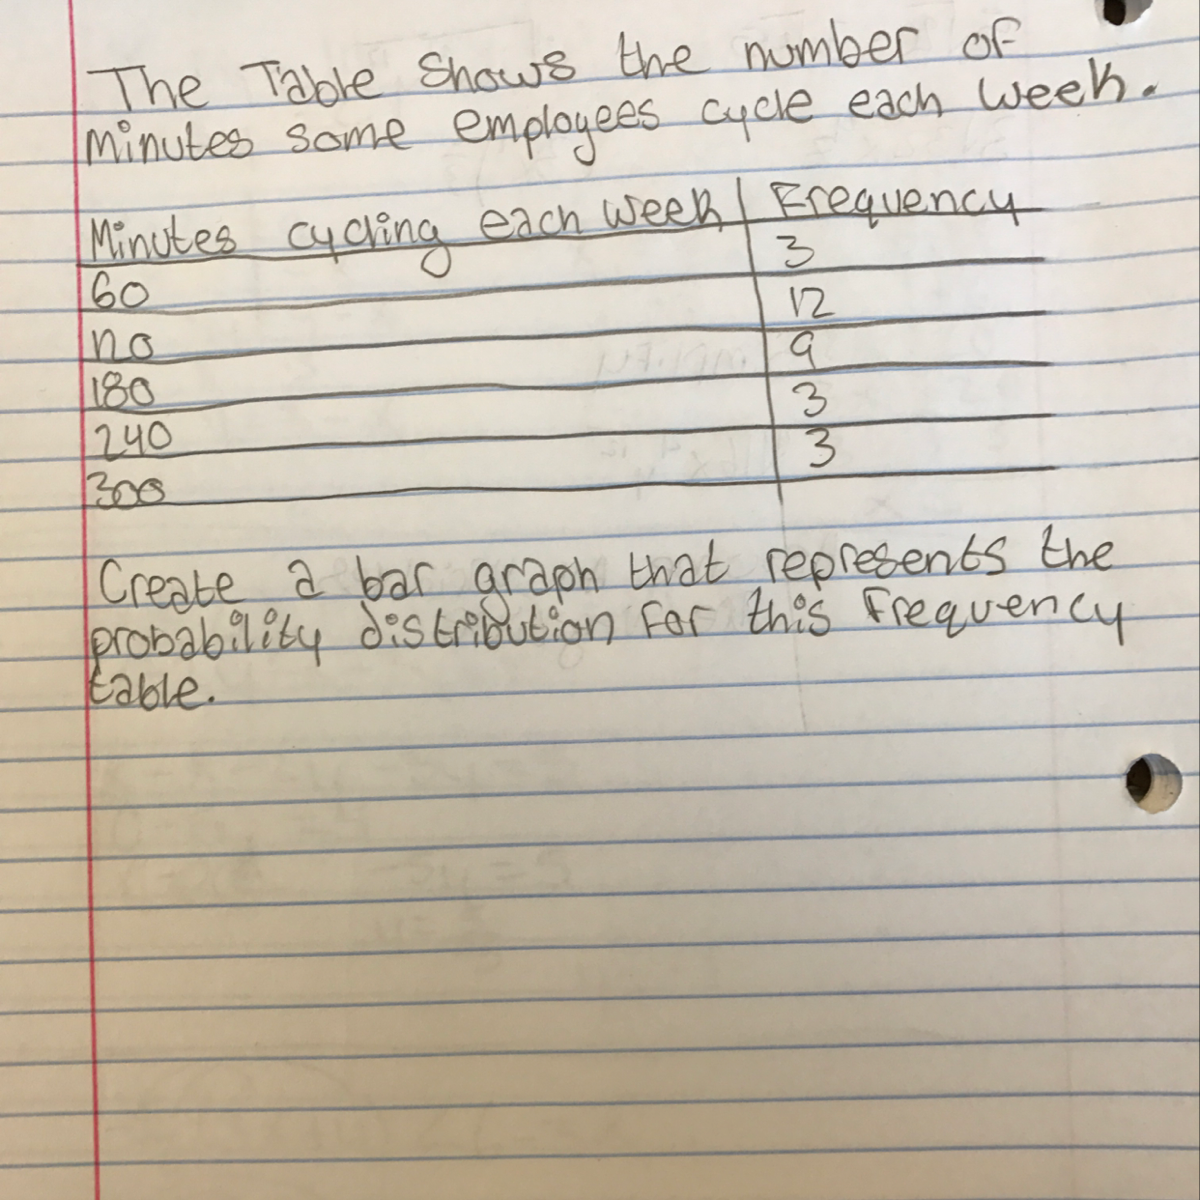 The Table shows the number of
minutes some employees cycle each week.
Minutes cycling each week | Frequency
60 3
120 12
180 9
240 3
300 3
Create a bar graph that represents the
probability distribution for this frequency
table.